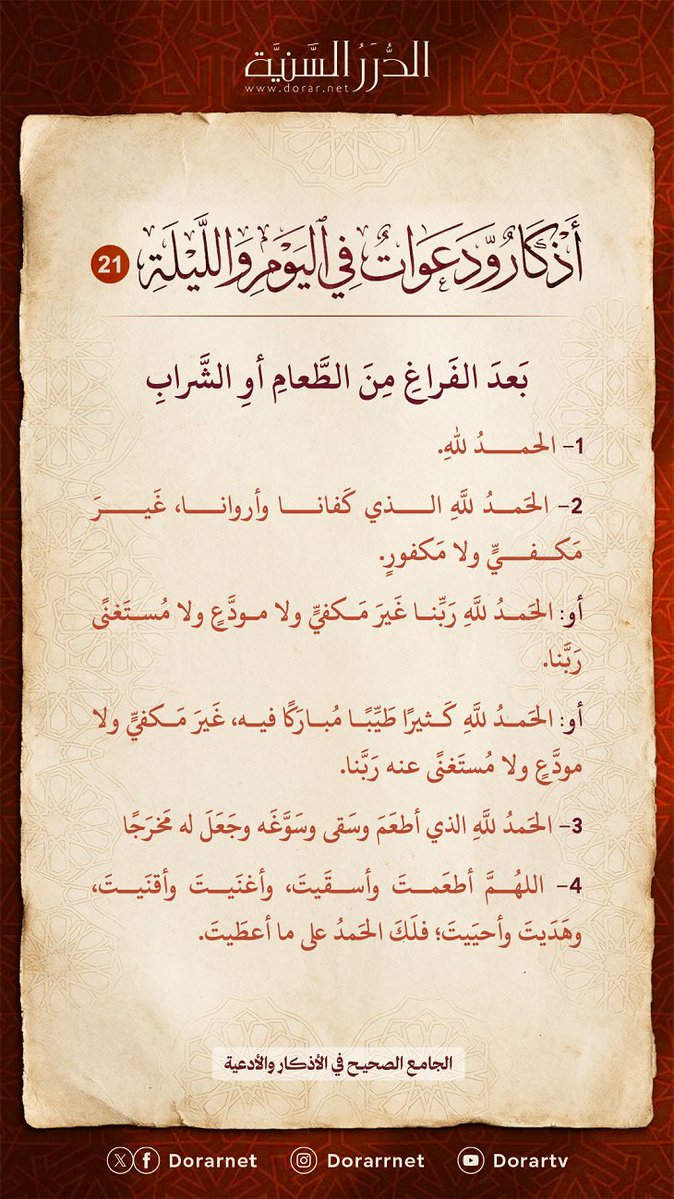 الدُّرَرُ السَّنِيَّة
www.dorar.net
أَذْكَارٌ وَّدَعَوَاتٌ فِي ٱليَوْمِ وَاللَّيْلَةِ 21
بَعدَ الفَراغِ مِنَ الطَّعامِ أوِ الشَّرابِ
1- الحمــــدُ للهِ.
2- الحَمدُ للَّهِ الــذي كَفانــا وأروانــا، غَيــرَ
مَكــفــيٍّ ولا مَكفورٍ.
أو: الحَمدُ للَّهِ رَبِّنـا غَيرَ مَـكفيٍّ ولا مـودَّعٍ ولا مُسـتَغنًى
رَبَّنا.
أو: الحَمـدُ للَّهِ كَـثيرًا طَيِّبًـا مُبـارَكًا فيـه، غَيرَ مَـكفيٍّ ولا
مودَّعٍ ولا مُستَغنًى عنه رَبَّنا.
3- الحَمدُ للَّهِ الذي أطعَمَ وسَقى وسَوَّغَه وجَعَلَ له مَخرَجًا
4- اللهُــمَّ أطعَمــتَ وأســقَيتَ، وأغنَيــتَ وأقنَيــتَ،
وهَدَيتَ وأحيَيتَ؛ فلَكَ الحَمدُ على ما أعطَيتَ.
الجامع الصحيح في الأذكار والأدعية
Dorarnet Dorarrnet Dorartv